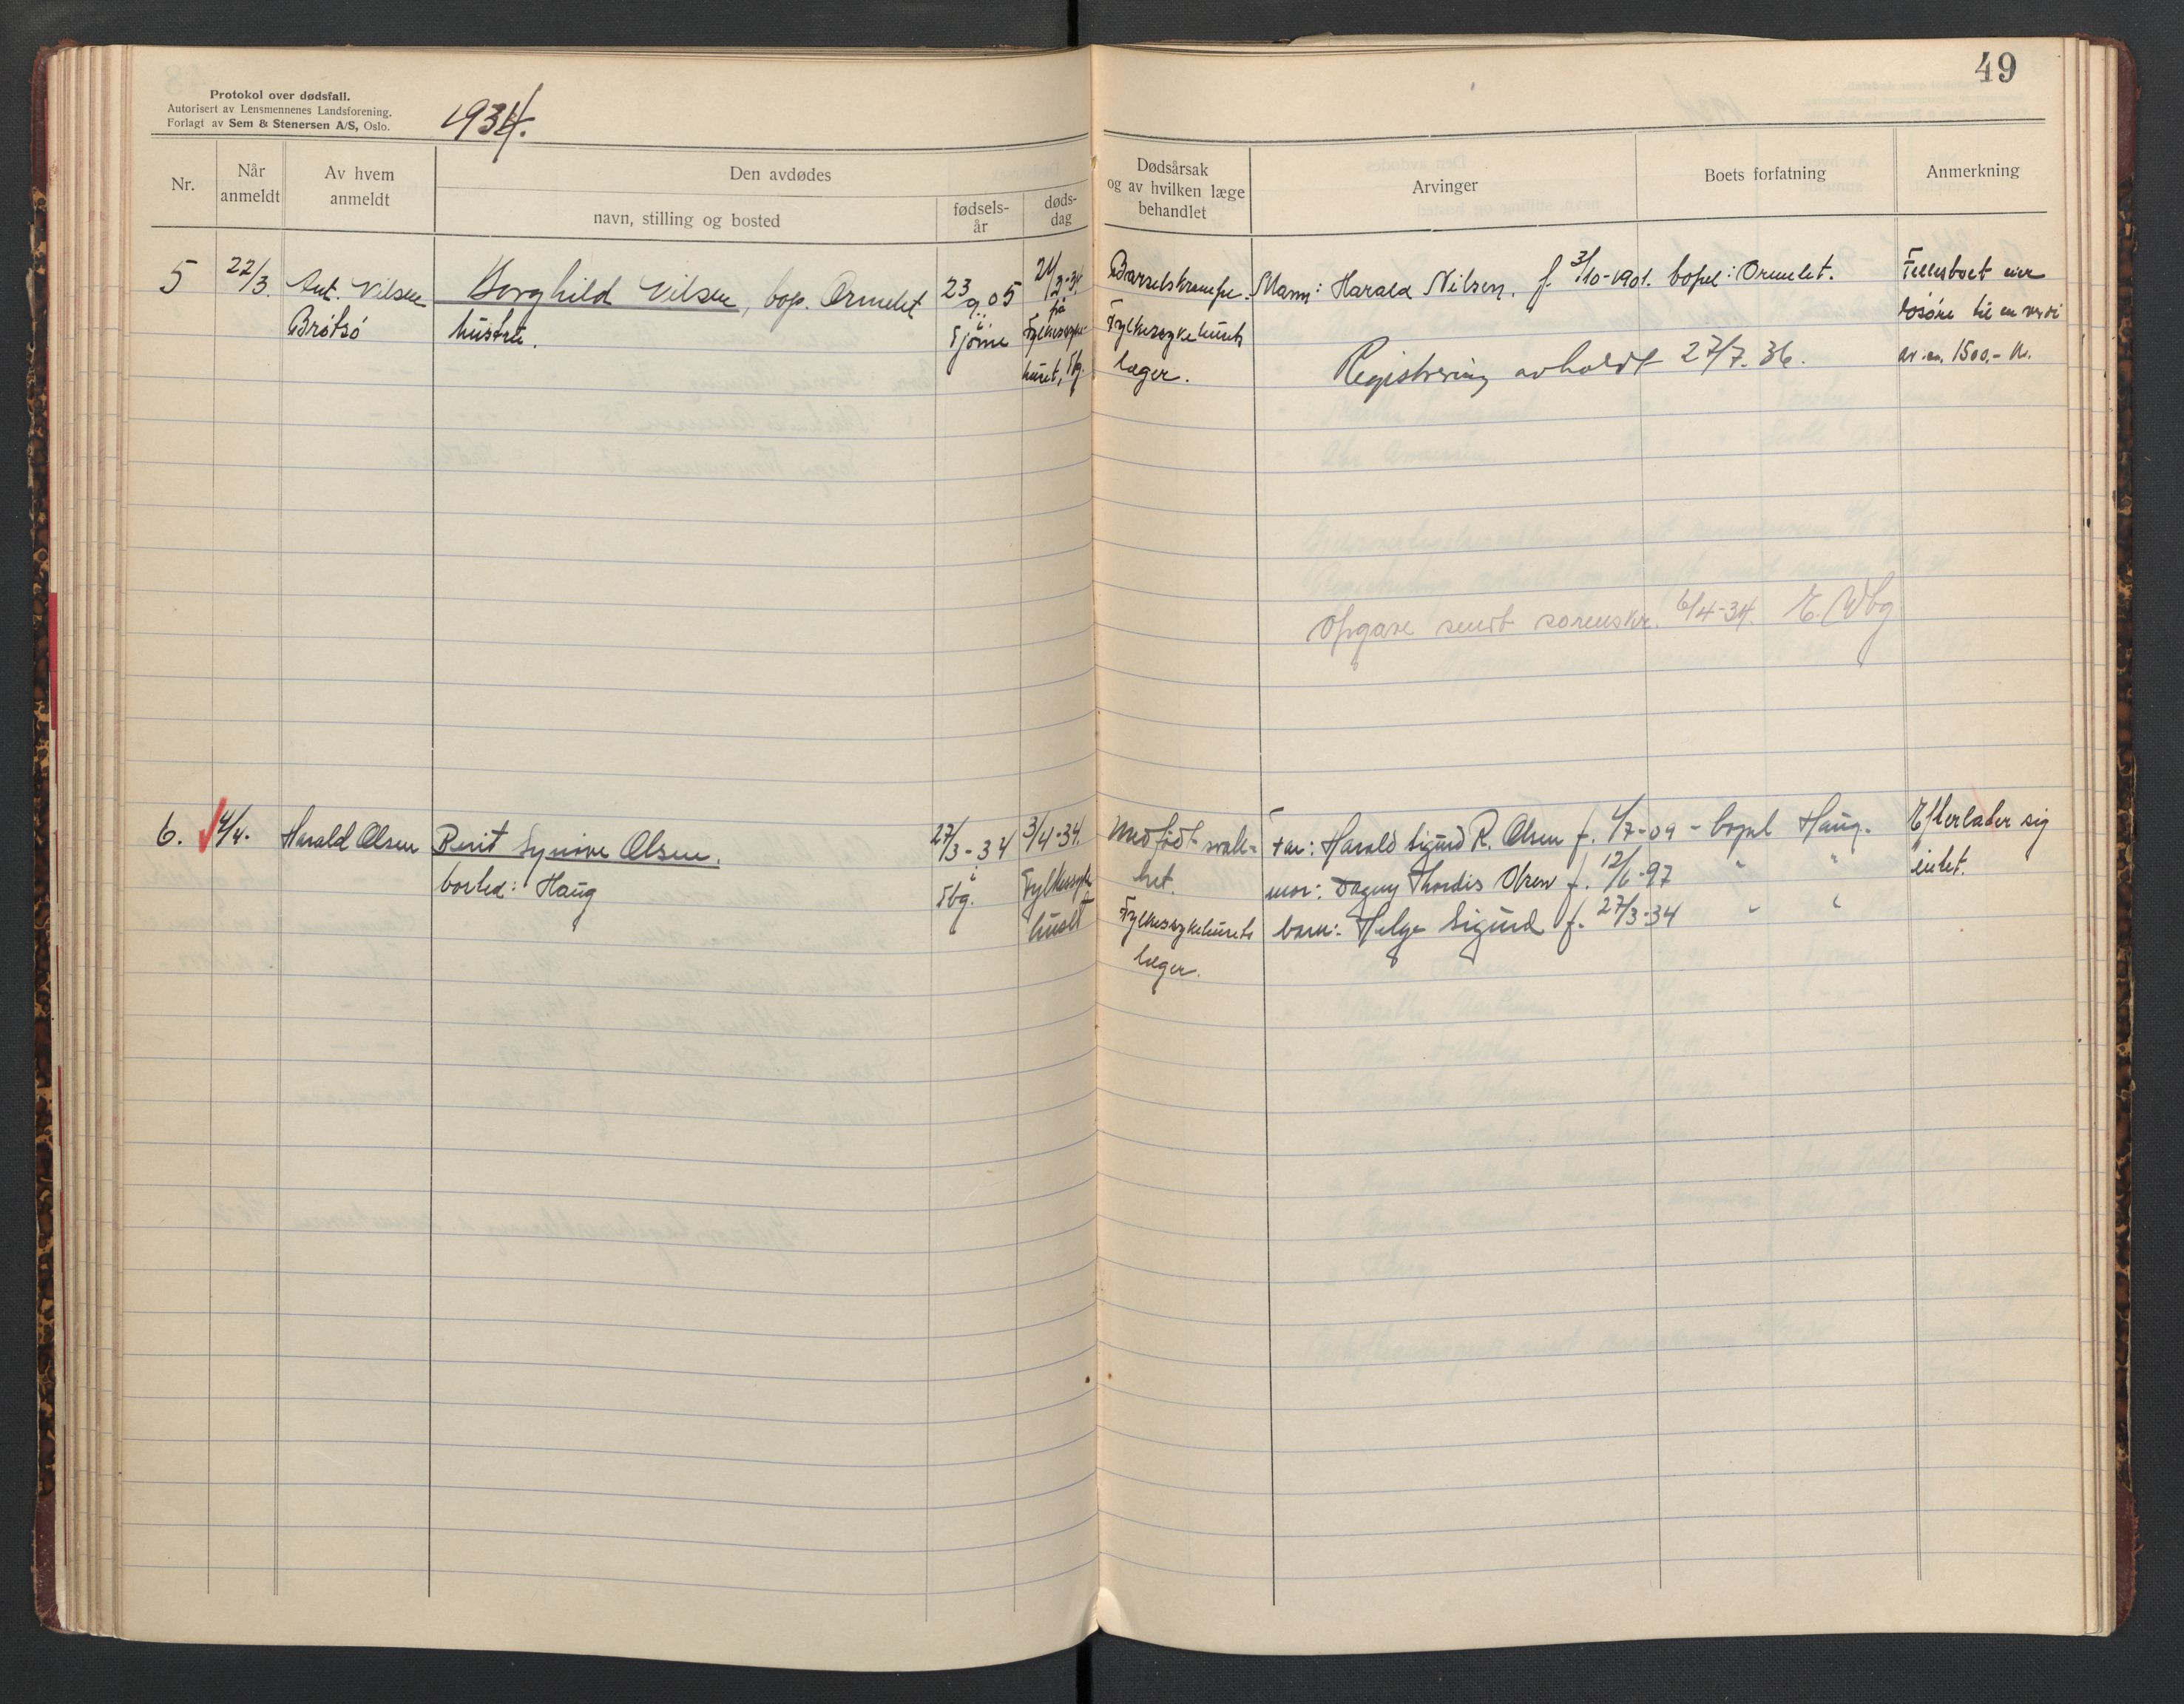 49
Protokol over dødsfall.
Autorisert av Lensmennenes Landsforening.
Forlagt av Sem & Stenersen A/S, Oslo.
1934.
Nr.
Når anmeldt
Av hvem anmeldt
Den avdødes
navn, stilling og bosted
fødsels-år
døds-dag
Dødsårsak og av hvilken læge behandlet
Arvinger
Boets forfatning
Anmerkning
5 22/3. Ant. Nilsen Borghild Nilsen, bop. Ormelet 23/9 05 21/3-34 Barselskrampe. Mann: Harald Nilsen. f. 3/10-1901. bopel: Ormelet. Fellesboet eier
Brøtsø hustru. i Tjøme på Fylkessyke- Fylkessykehusets løsøre til en verdi
huset, Tbg. læger. Registrering avholdt 27/7. 36. av ca. 1500,- kr.
Opgave sendt sorenskr. 6/4-34. E. Wbg
6. 4/4. Harald Olsen Berit Synøve Olsen. 27/3-34 3/4-34. Medfødt svak- Far: Harald Sigurd R. Olsen f. 4/7-09 - bopel Haug. Efterlater sig
bosted: Haug i Tbg. Fylkessyke het. mor: Dagny Thordis Olsen f. 12/6-97 " " intet.
huset Fylkessykehusets barn: Helge Sigurd f. 27/3-34 " "
læger.